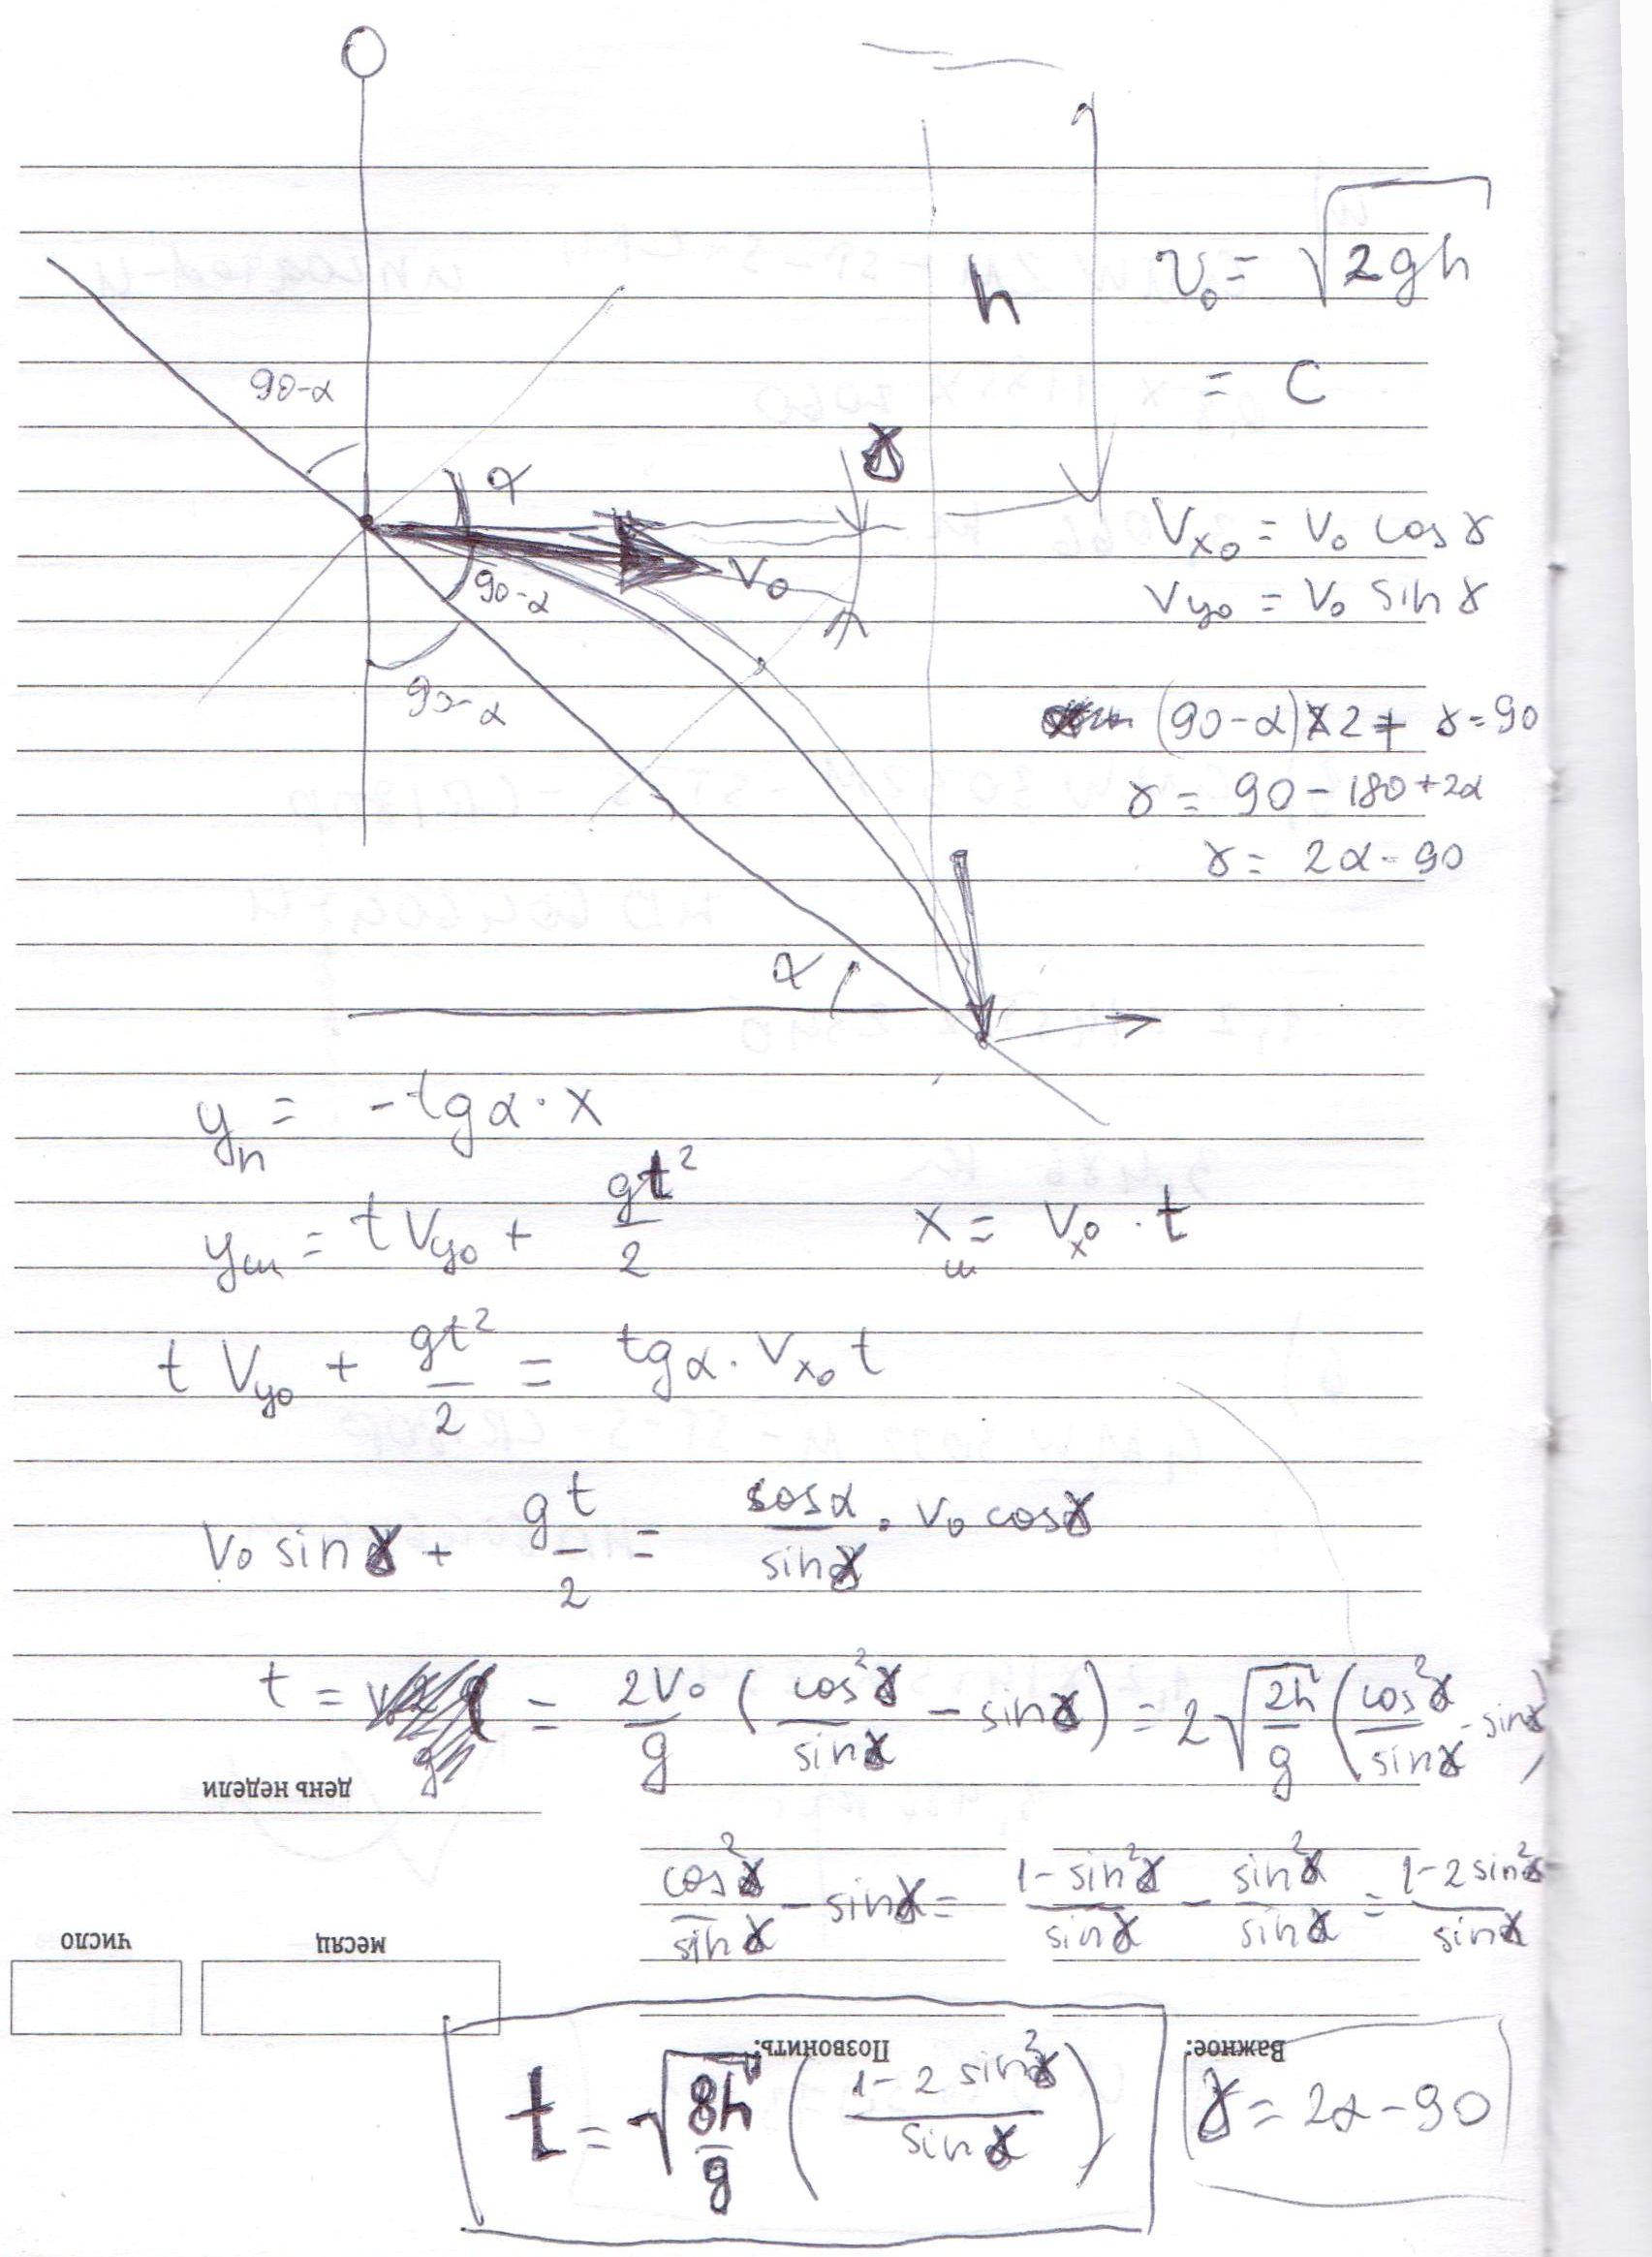 h
v₀ = √2gh
= C
90-α
α
γ
V₀
90-α
90-α
V x₀ = V₀ cos γ
V y₀ = V₀ sin γ
(90-α)×2 + γ = 90
γ = 90 - 180 + 2α
γ = 2α - 90
α
yₙ = - tg α · x
yш = t Vy₀ + gt²/2 xш = Vx₀ · t
t Vy₀ + gt²/2 = tg α · Vx₀ t
V₀ sin γ + gt/2 = cos α/sin γ · V₀ cos γ
t = = 2V₀/g (cos²γ/sin γ - sin γ) = 2 √2h/g (cos²γ/sin γ - sin γ)
день недели
cos²γ/sin γ - sin γ = 1 - sin²γ/sin γ - sin²γ/sin γ = 1 - 2 sin²γ/sin γ
число
месяц
Позвонить:
Важное:
t = √8h/g (1 - 2 sin²γ/sin γ) γ = 2α - 90